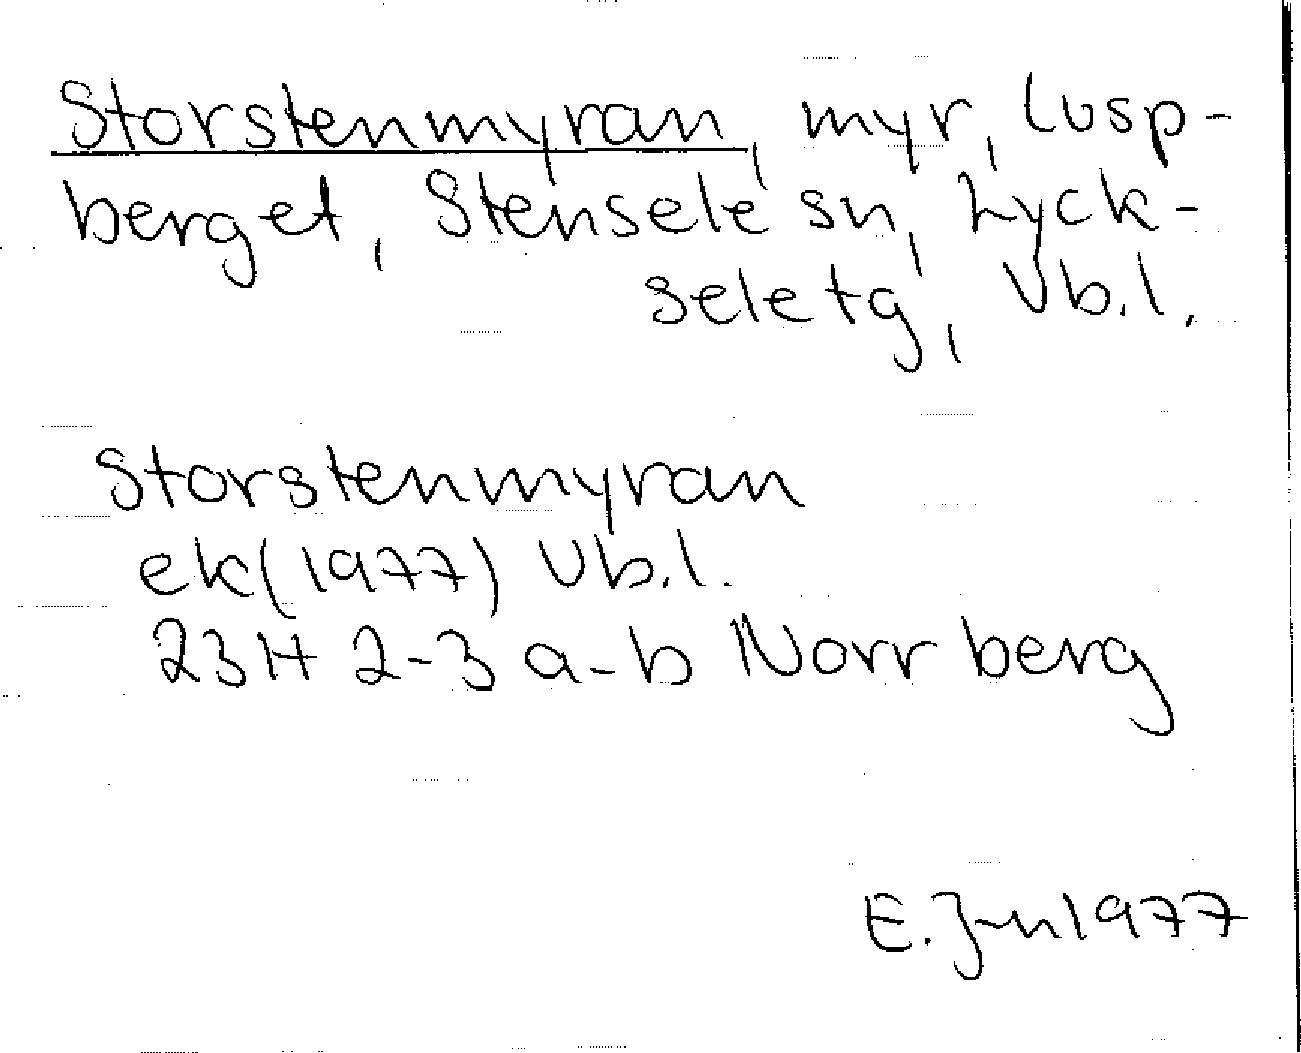 Storstenmyran, myr, Lusp-
berget, Stensele sn, Lyck-
seletg, Vb.l.
Storstenmyran
ek(1977) Vb.l.
23H 2-3 a-b Norrberg
E. J-n 1977